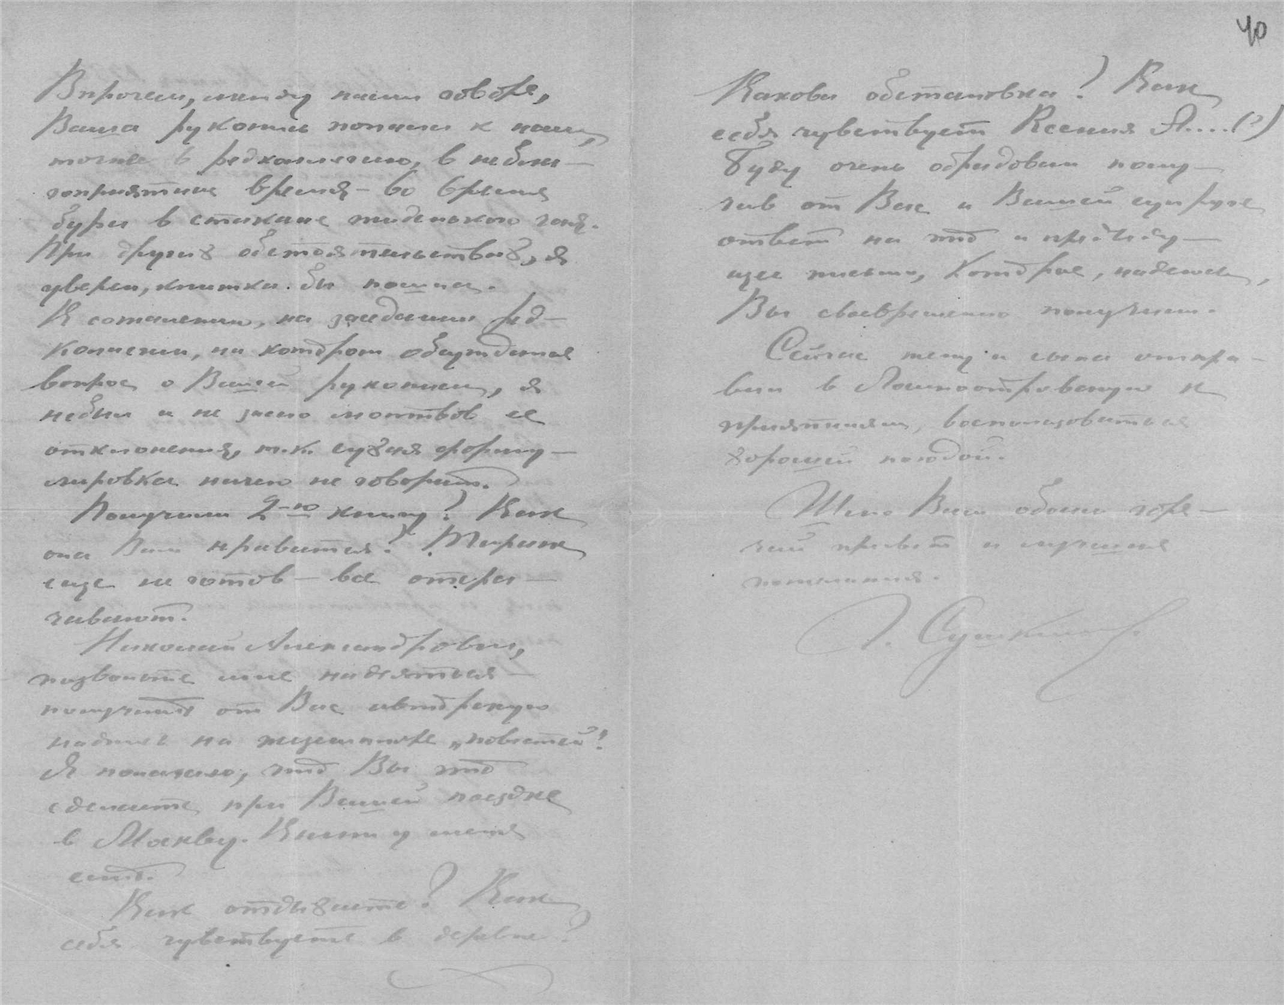 40
Впрочем, между нами говоря,
Ваша рукопись попала к нам,
точнее в редколлегию, в небла-
гоприятное время – во время
бури в стакане жиденького чая.
При других обстоятельствах, я
уверен, книжка бы пошла.
К сожалению, на заседании ред-
коллегии, на котором обсуждался
вопрос о Вашей рукописи, я
не был и не знаю мотивов ее
отклонения, т.к. сухая форму-
лировка ничего не говорит.
Получили 2-ю книгу? Как
она Вам нравится? Тираж
еще не готов – все отпеча-
тывают.
Николай Александрович,
позвольте мне надеяться
получить от Вас авторскую
надпись на экземпляре „повестей"!
Я полагаю, что Вы это
сделаете при Вашей поездке
в Москву. Книги у меня
есть.
Как отдыхаете? Как
себя чувствуете в деревне?
Какова обстановка? Как
себя чувствует Ксения А....(?)
Буду очень обрадован полу-
чив от Вас и Вашей супруги
ответ на это и предыду-
щее письмо, которое, надеюсь,
Вы своевременно получили.
Сейчас жену и сына отпра-
вил в Лосиноостровскую к
приятелям, воспользоваться
хорошей погодой.
Шлю Вам обоим горя-
чий привет и лучшие
пожелания.